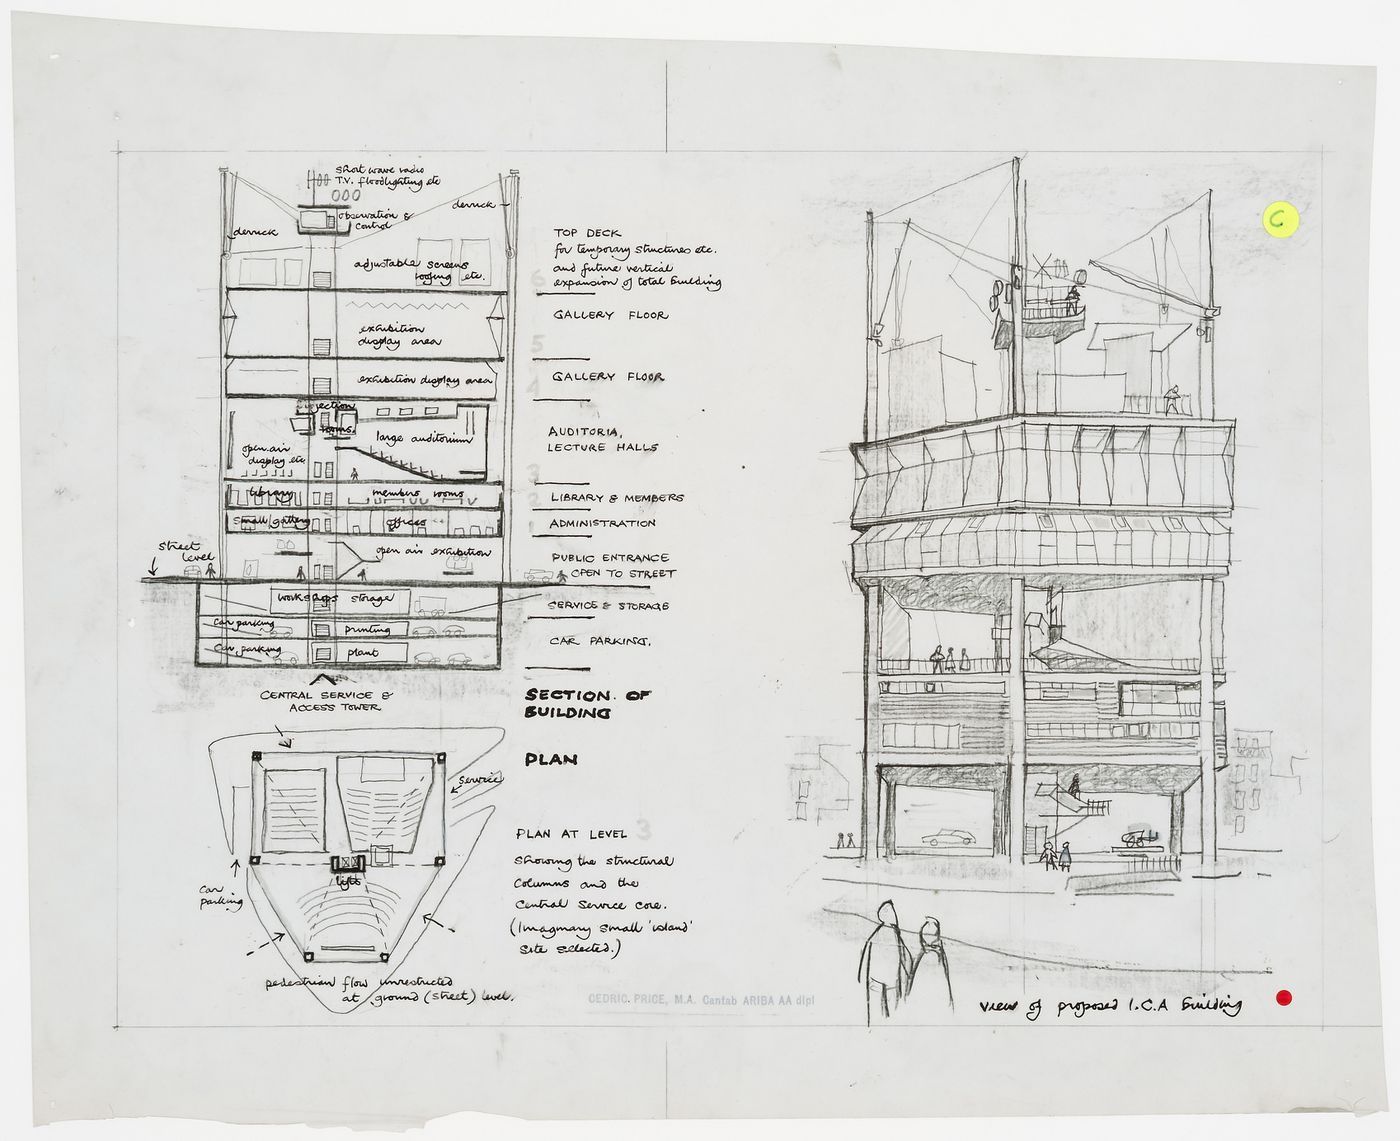 short wave radio
T.V. floodlighting etc
observation &
control
derrick
derrick
adjustable screens
roofing etc.
exhibition
display area
exhibition display area
rooms.
large auditorium
open air
display etc
library
members rooms
small gallery
offices
open air exhibition
street
level
workshops storage
car parking
printing
car parking
plant
CENTRAL SERVICE &
ACCESS TOWER
TOP DECK
for temporary structures etc.
and future vertical
expansion of total building
6
GALLERY FLOOR
5
GALLERY FLOOR
4
AUDITORIA,
LECTURE HALLS
3
LIBRARY & MEMBERS
2
ADMINISTRATION
1
PUBLIC ENTRANCE
OPEN TO STREET
SERVICE & STORAGE
CAR PARKING.
SECTION OF
BUILDING
PLAN
service
lifts
car
parking
pedestrian flow unrestricted
at ground (street) level.
PLAN AT LEVEL 3
Showing the structural
columns and the
central service core.
(Imaginary small 'island'
site selected.)
CEDRIC. PRICE, M.A. Cantab ARIBA AA dipl
C
view of proposed I.C.A building